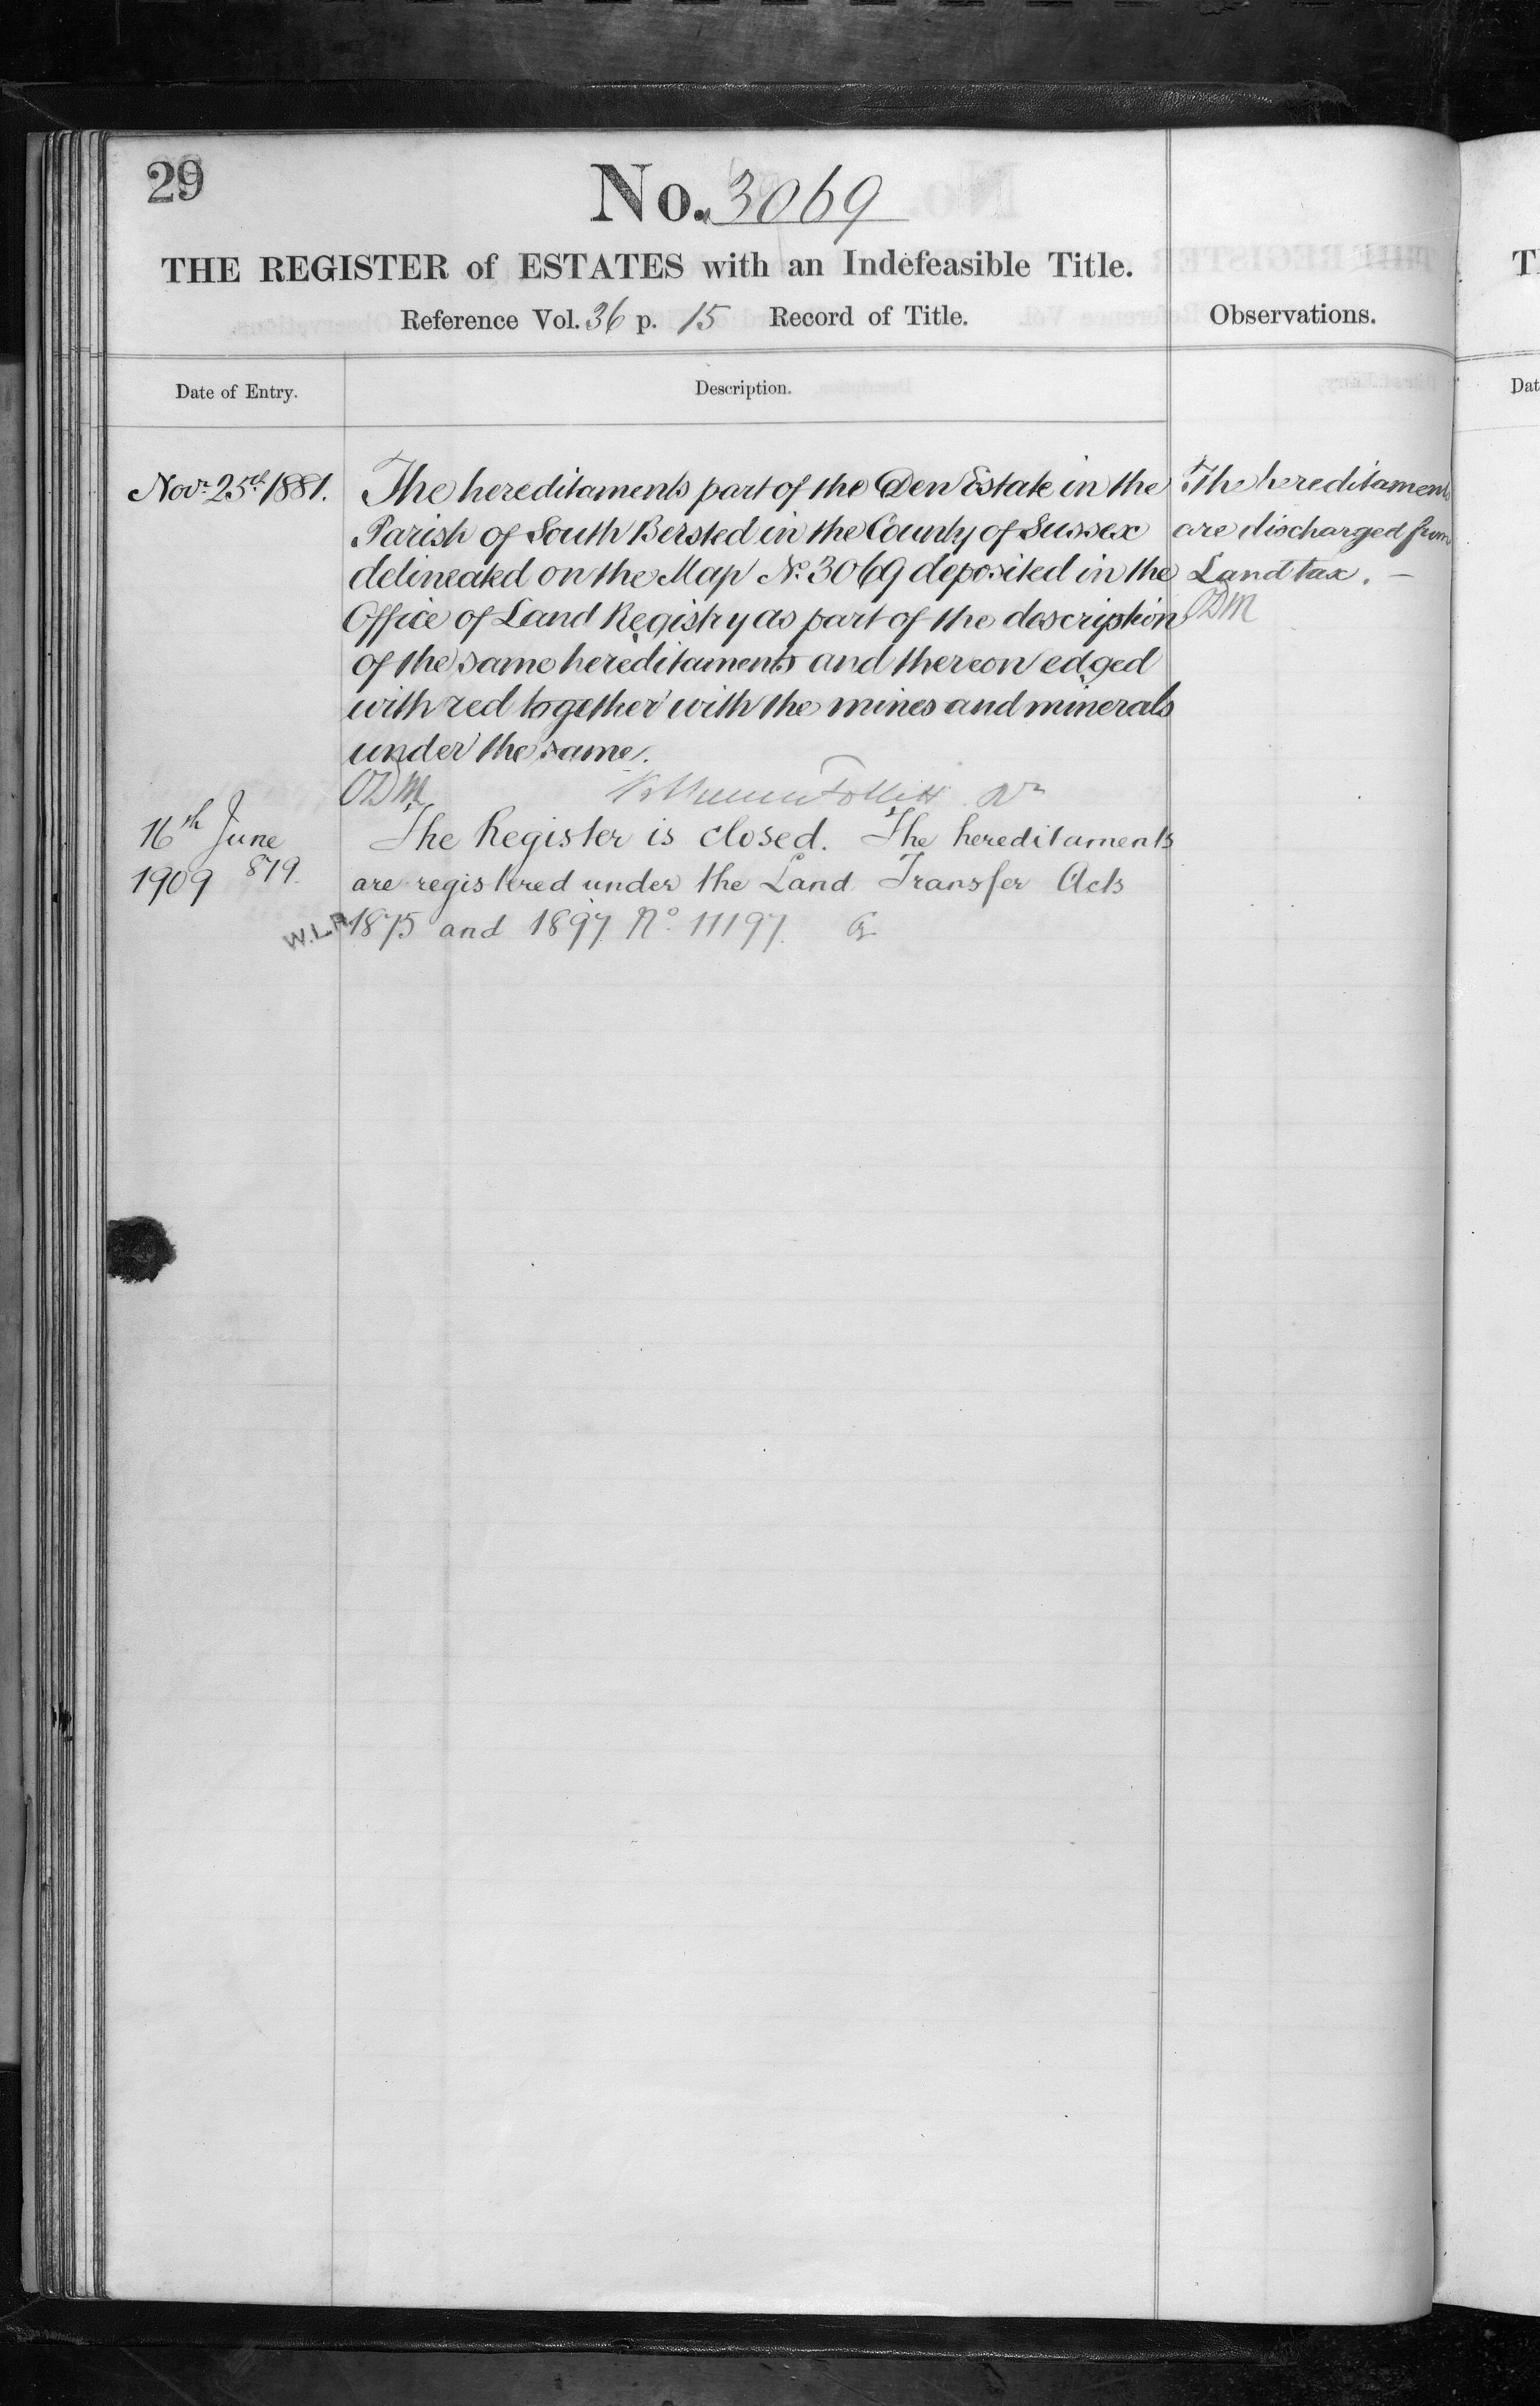 29
No. 3069
THE REGISTER of ESTATES with an Indefeasible Title.
Reference Vol. 36 p. 15 Record of Title.
Observations.
Date of Entry.
Description.
Novr. 25th 1881.
The hereditaments part of the Den Estate in the
Parish of South Bersted in the County of Sussex
delineated on the Map No. 3069 deposited in the
Office of Land Registry as part of the description
of the same hereditaments and thereon edged
with red together with the mines and minerals
under the same.
The hereditaments
are discharged from
Land tax. —
ODM
ODM
Follett
16th June
1909 879.
The Register is closed. The hereditaments
are registered under the Land Transfer Acts
1875 and 1897. No. 11197.
W.L.R.
T
Dat